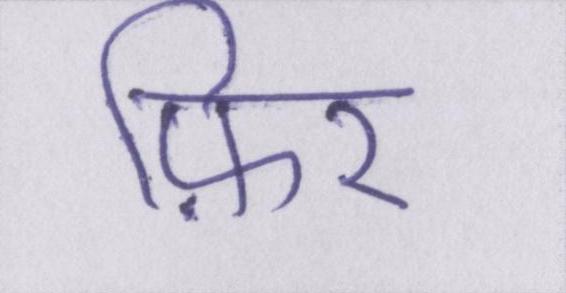 फ़िर